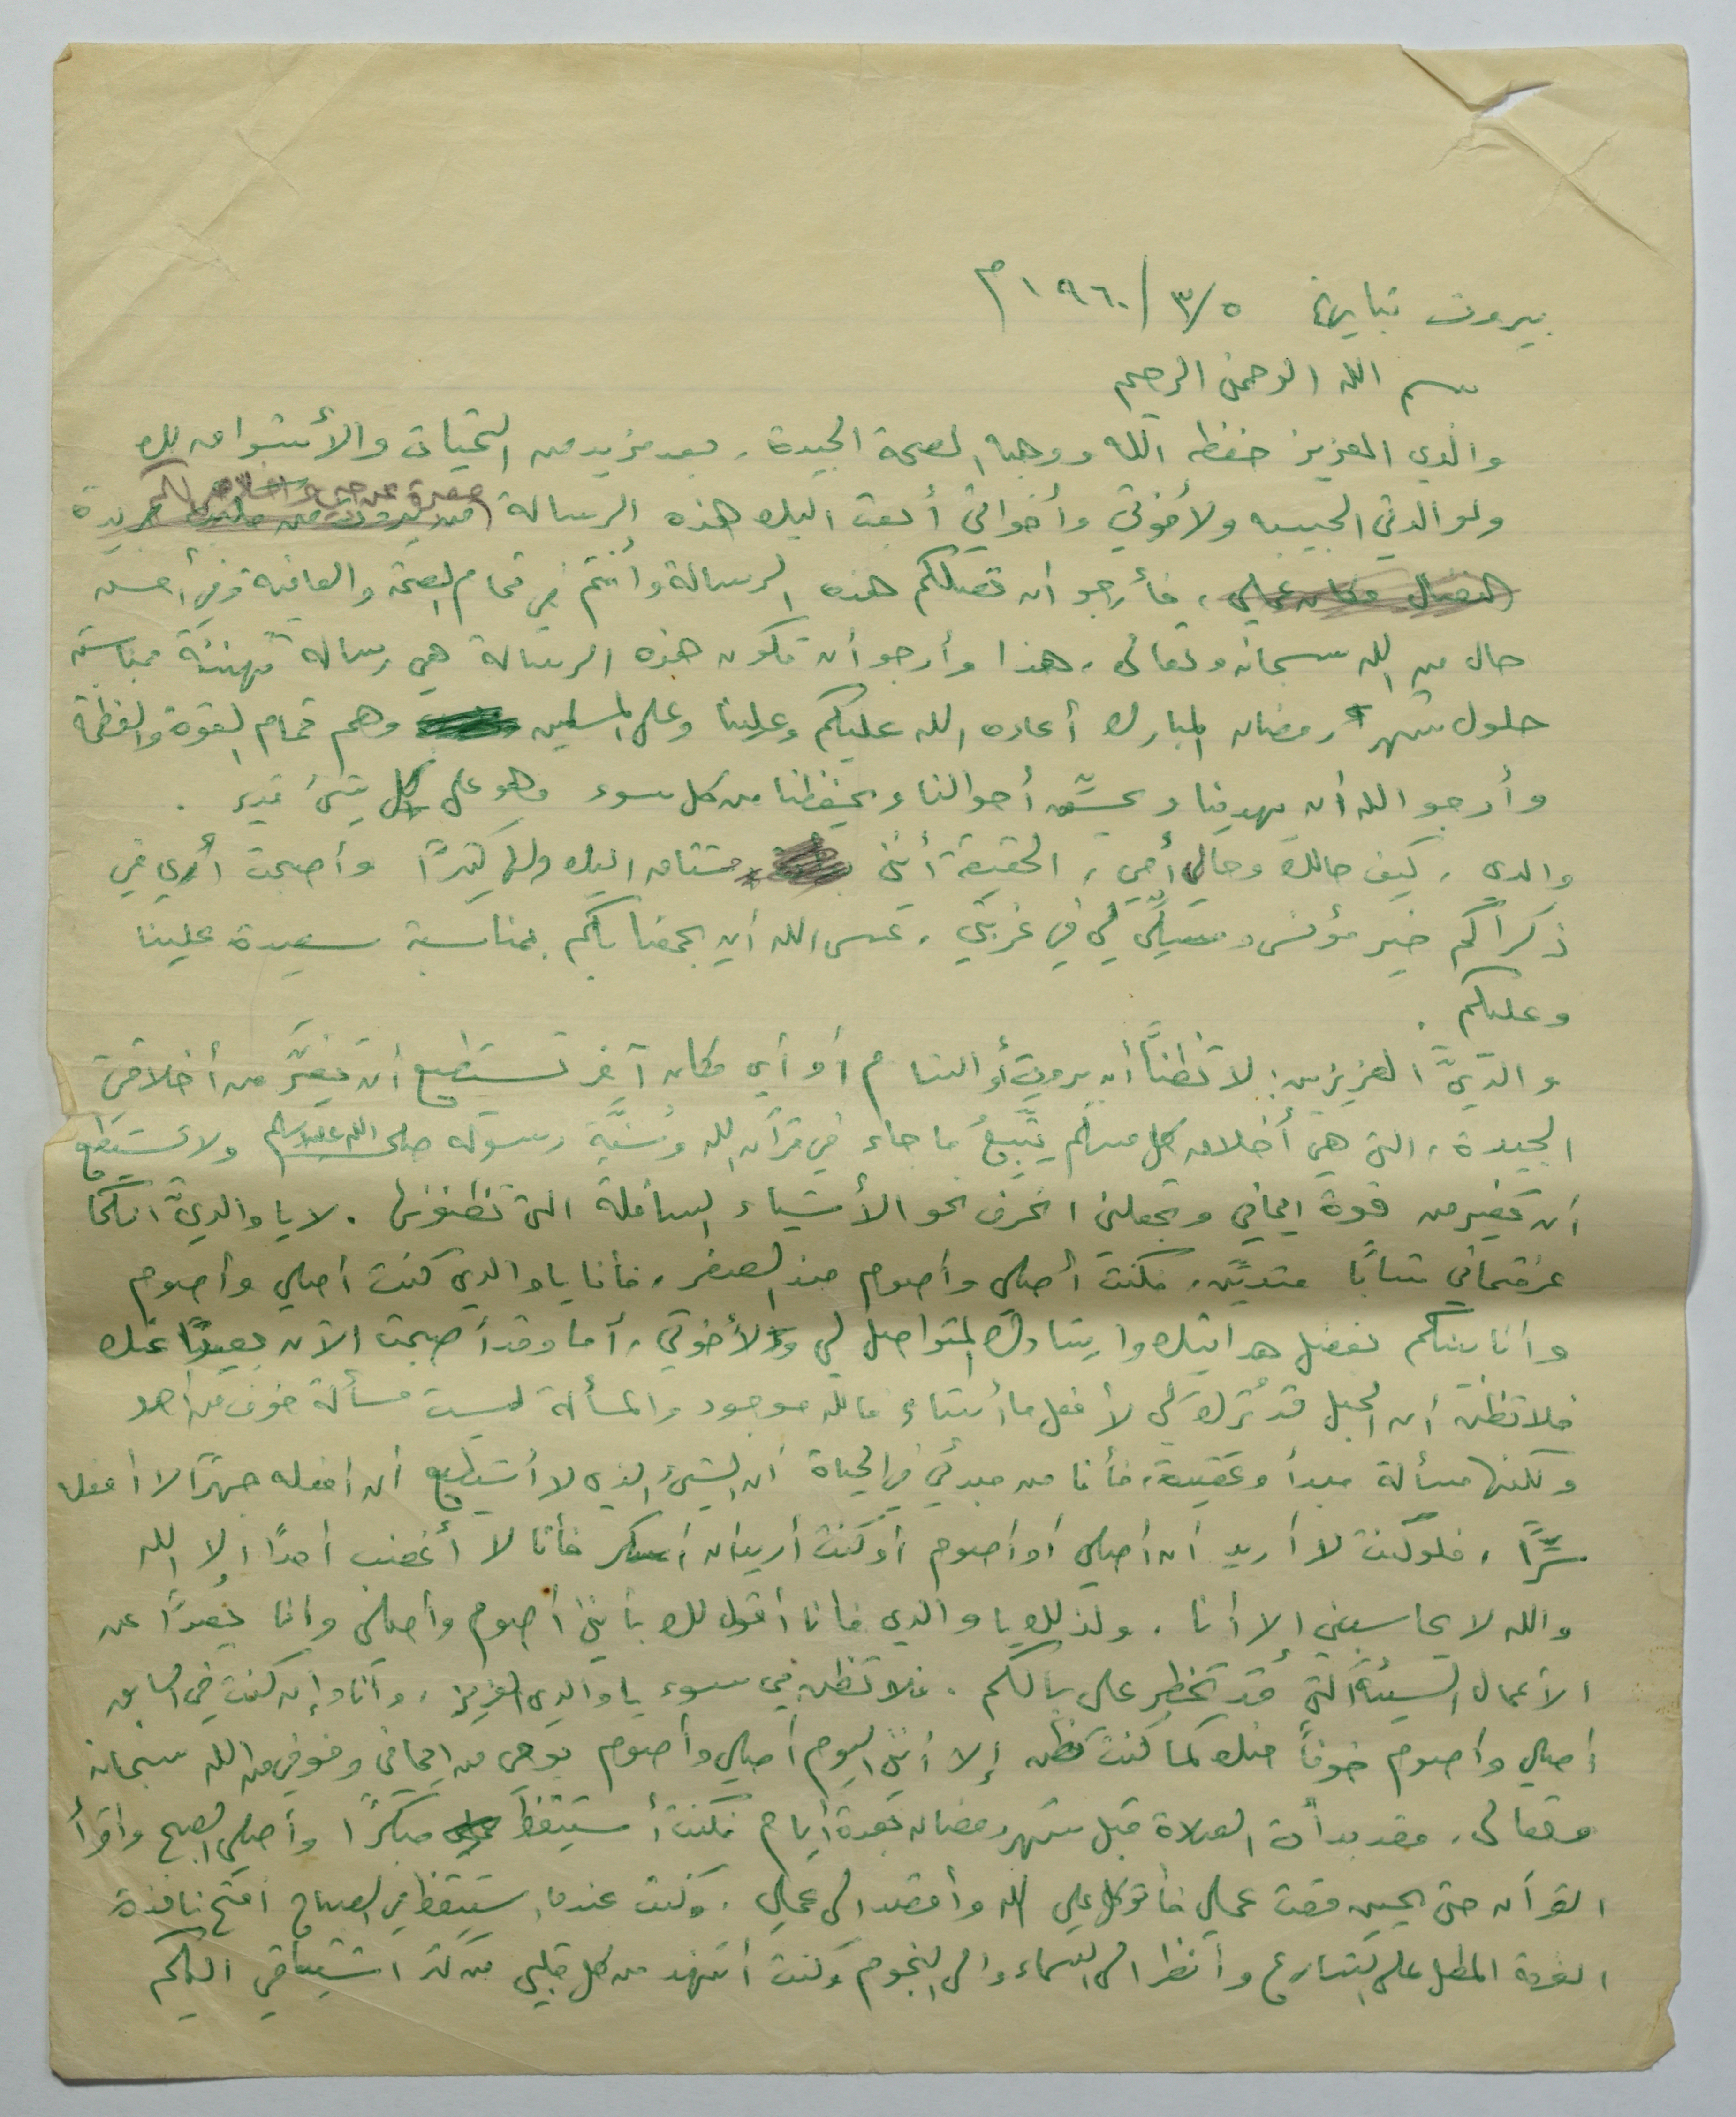 بيروت بتاريخ ٣/٥/١٩٦٠م
بسم الله الرحمن الرحيم
والدي العزيز حفظه الله ووهبه الصحة الجيدة، بعد مزيد من التحيات والأشواق لك
ولوالدتي الحبيبه ولأخوتي وأخواتي أبعث اليك هذه الرسالة معبرة عن حبي واخلاصي لكم
فأرجو ان تصلكم هذه الرسالة وأنتم في تمام الصحة والعافية وفي أحسن
حال من الله سبحانه وتعالى، هذا وأرجو أن تكون هذه الرسالة هي رسالة تهنئة بمناسبة
حلول شهر رمضان المبارك أعاده الله عليكم وعلينا وعلى المسلمين وهم تمام القوة والعظمة
وأرجو الله أن يهدينا ويحسّن أحوالنا ويحفظنا من كل سوء وهو على كل شئ قدير .
والدي، كيف حالك وحال أمي، الحقيقة أنني مشتاق اليك ولها كثيرًا وأصبحت أرى في
ذكراكم خير مؤنس ومسلّي لي في غربتي، عسى الله أن يجمعنا بكم بمناسبة سعيدة علينا
وعليكم .
والديَّ العزيزين: لا تظنَّا أن بيروت أو الشام أو أي مكان آخر تستطيع أن تغيّر من أخلاقي
الجيدة، التي هي أخلاق كل مسلم يتَّبعُ ما جاء في قرآن الله وسُنَّة رسوله صلى الله عليه وسلم ولا تستطيع
أن تغير من قوة ايماني وتجعلني انحرف نحو الأشياء السافلة التي تظنونها. لا يا والديَّ انكما
عرفتماني شابًا متديّن، فكنت أصلي وأصوم منذ الصغر، فأنا يا والدي كنت اصلي وأصوم
وأنا بينكم بفضل هدايتك وارشادك المتواصل لي ولأخوتي، أما وقد أصبحت الآن بعيدًا عنك
فلا تظن أن الحبل قد تُرك لي لأفعل ما أشاء فالله موجود والمسألة ليست مسألة خوف من احد
ولكنها مسألة مبدأ وعقيدة، فأنا من مبدئي في الحياة أن الشئ الذي لا أستطيع أن افعله جهرًا لا أفعله
سرًّا، فلو كنت لا أريد أن اصلي أو اصوم أو كنت أريد ان أسكر فأنا لا أغضب أحدًا إلا الله
والله لا يحاسبني إلا أنا. ولذلك يا والدي فأنا أقول لك بأنني أصوم وأصلي وأنا بعيدًا عن
الأعمال السيئة التي قد تخطر على بالكم. فلا تظن في سوء يا والدي العزيز، وأنا وإن كنت في السابق
أصلي وأصوم خوفاً منك كما كنت تظن إلا أنني اليوم أصلي وأصوم بوحي من ايماني وخوفي من الله سبحانه
وتعالى، فقد بدأت الصلاة قبل شهر رمضان بعدة أيام فكنت أستيقظ مبكرًا وأصلي الصبح وأقرأ
القرآن حتى يحين وقت عملي فأتوكل على الله وأقصد الى عملي. وكنت عندما استيقظ في الصباح افتح نافذة
الغرفة المطل على الشارع وأنظر الى السماء والى النجوم وكنت أتنهد من كل قلبي من كثر اشتياقي اليكم